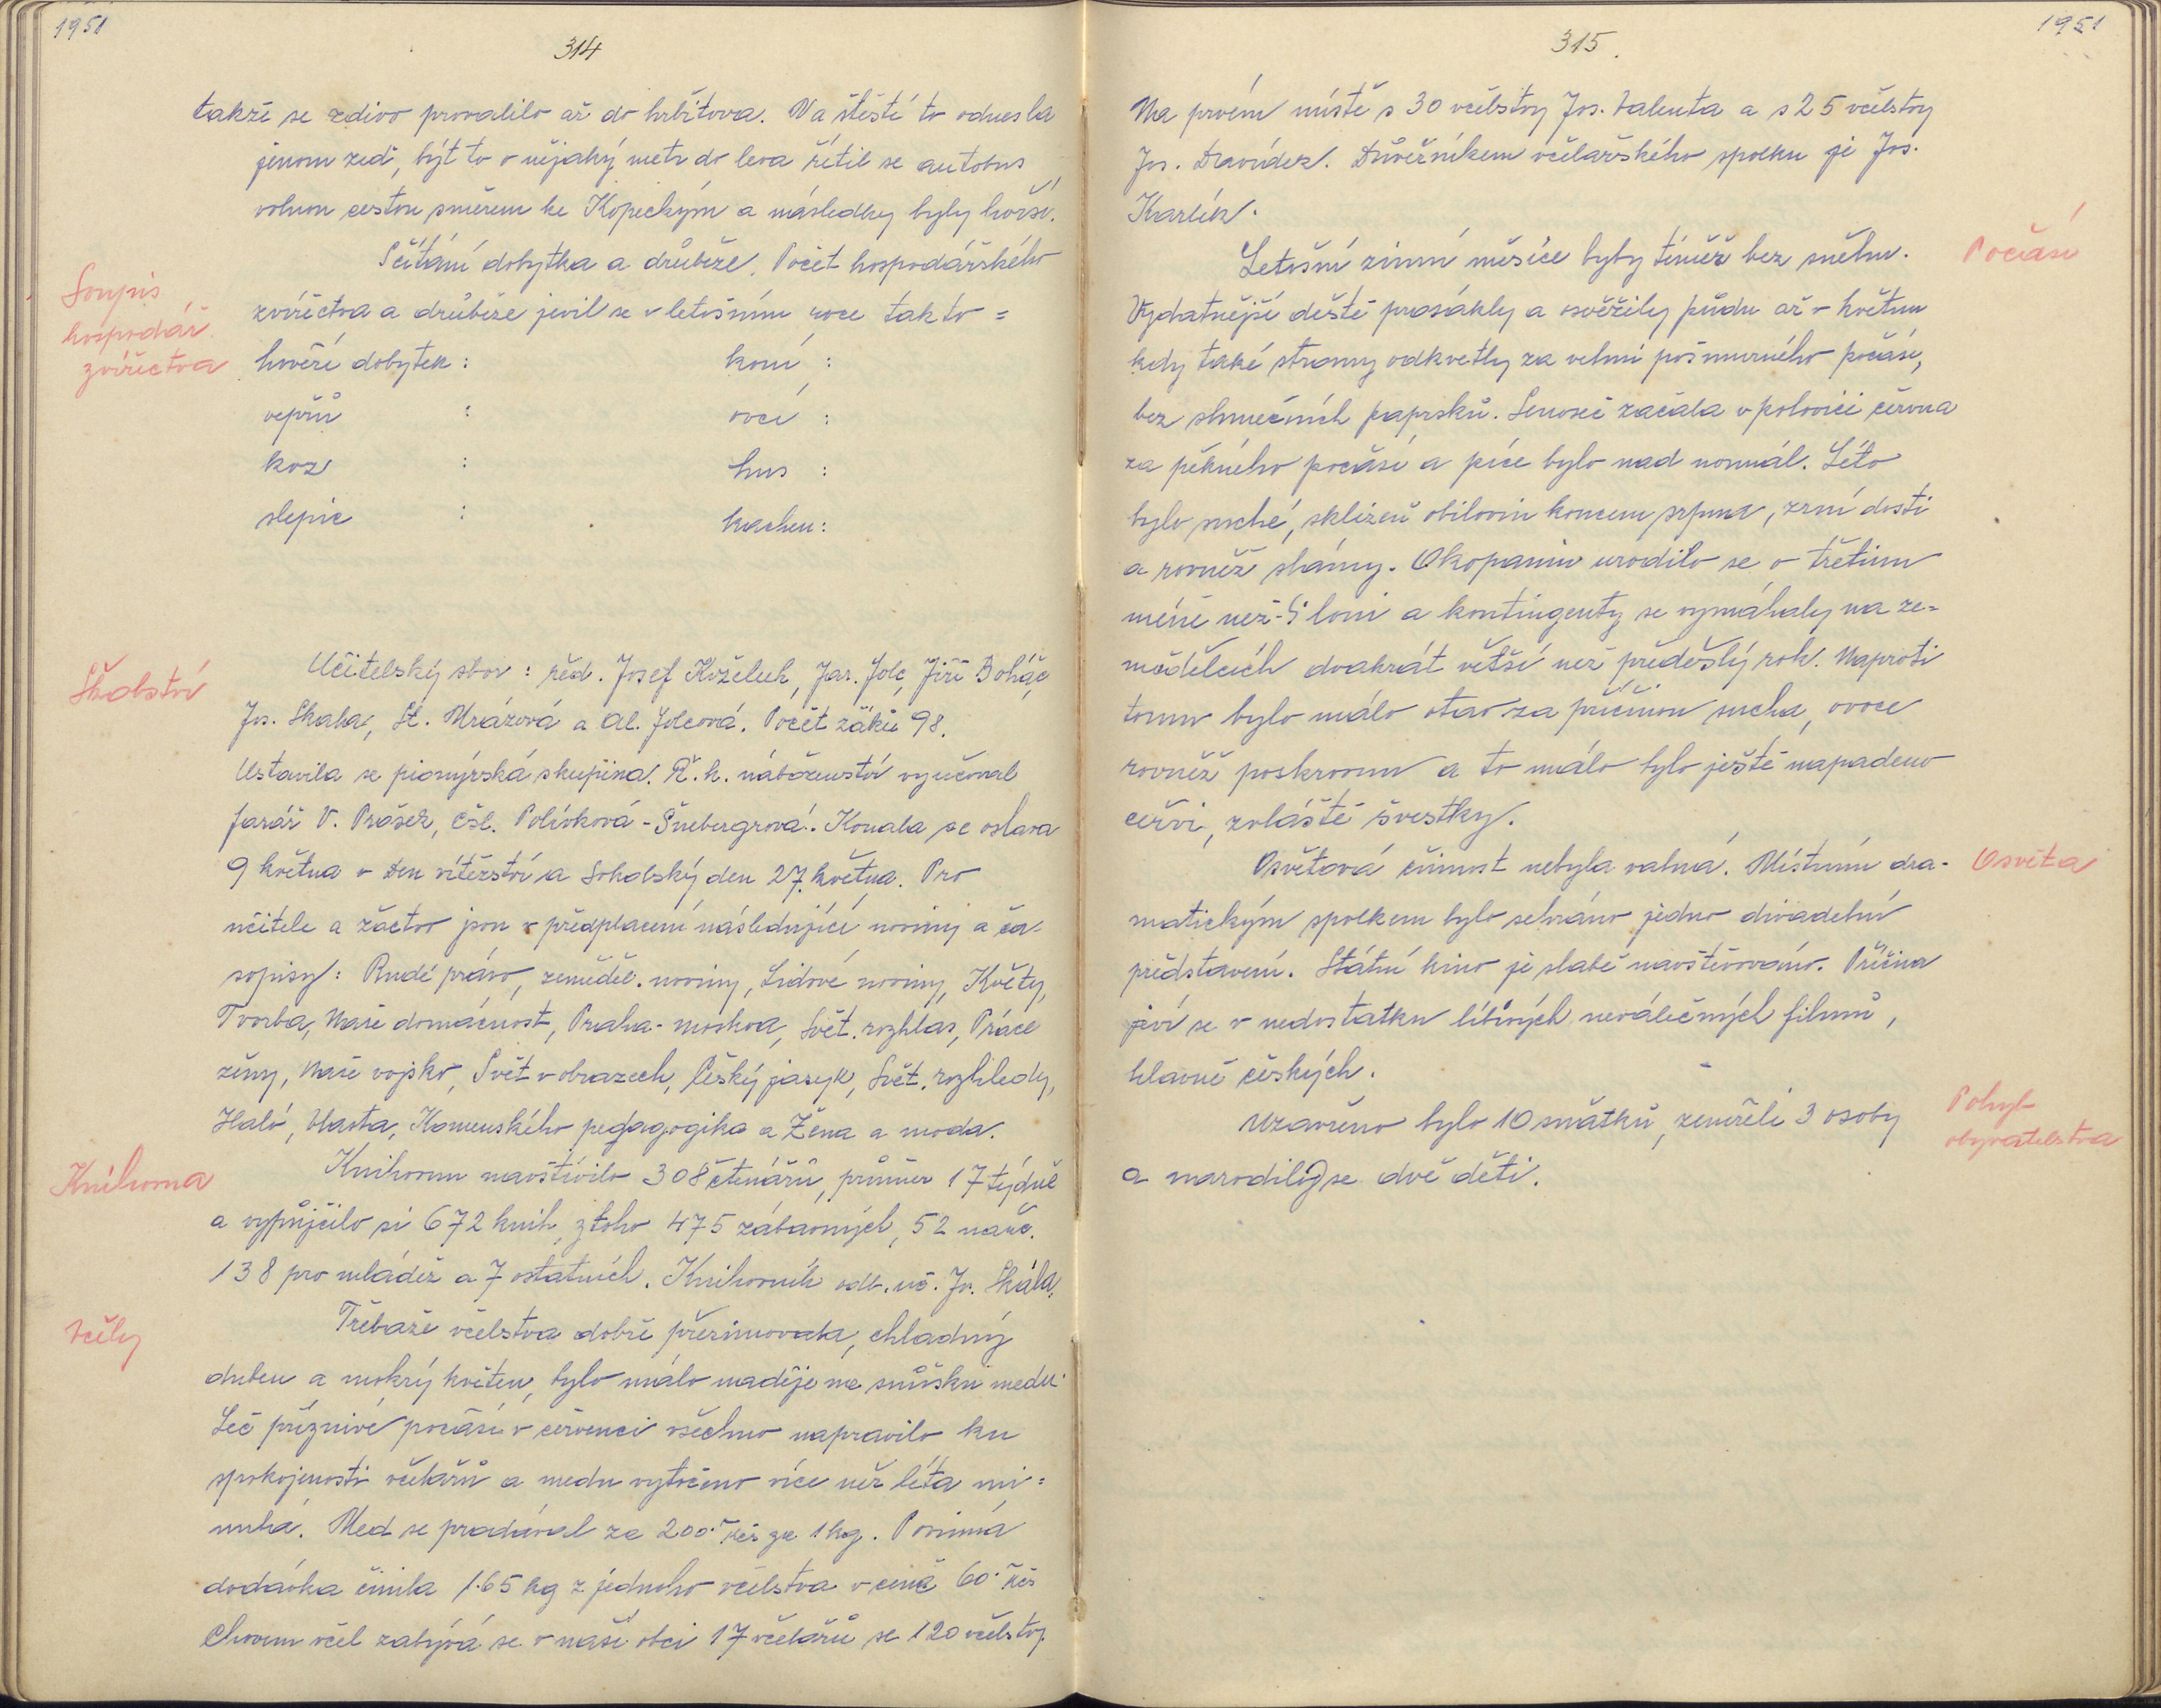 1951
314
takže se zdivo provalilo až do hrbitova. Na štěstí to odnesla
jenom zeď, být to o nějaký metr do leva řítil se autobus
volnou cestou směrem ke Kopeckým a následky byly horší.
Soupis
hospodář.
zvířectva
Sčítání dobytka a drůbeže. Počet hospodářského
zvířectva a drůbeže jevil se v letošním roce takto =
hovězí dobytek : koní :
vepřů : ovcí :
koz : hus :
slepic : kachen :
Školství
Učitelský sbor : řed. Josef Koželuh, Jar. Jolc, Jiří Boháč,
Jos. Skala, St. Mrázová a Al. Jolcová. Počet žáků 98.
Ustavila se pionýrská skupina. Ř. k. náboženství vyučoval
farář V. Prášek, čsl. Polívková-Šnebergrová. Konala se oslava
9 května v Den vítězství a Sokolský den 27. května. Pro
učitele a žactvo jsou v předplacení následující noviny a ča-
sopisy : Rudé právo, zeměděl. noviny, Lidové noviny, Květy,
Tvorba, Naše domácnost, Praha-Moskva, Svět. rozhlas, Práce
ženy, Naše vojsko, Svět v obrazech, Český jazyk, Svět. rozhledy,
Haló, Vlasta, Komenského pedagogika a Žena a moda.
Knihovna
Knihovnu navštívilo 308 čtenářů, průměr 17 týdně
a vypůjčilo si 672 knih, z toho 475 zábavných, 52 nauč.
138 pro mládež a 7 ostatních. Knihovník odb. uč. Jos. Skála.
Včely
Třebaže včelstva dobře přezimovala, chladný
duben a mokrý květen, bylo málo naděje na snůšku medu.
Leč příznivé počásí v červenci všechno napravilo ku
spokojenosti včelařů a medu vytočeno více než léta mi=
nulá. Med se prodával za 200.- Kčs za 1 kg. Povinná
dodávka činila 1.65 kg z jednoho včelstva v ceně 60.- Kčs
Chovem včel zabývá se v naší obci 17 včelařů se 120 včelstvy.
1951
315.
Na prvém místě s 30 včelstvy Jos. Valenta a s 25 včelstvy
Jos. Davídek. Důvěrníkem včelařského spolku je Jos.
Karlík.
Počasí
Letošní zimní měsíce byly téměř bez sněhu.
Vydatnější deště prosákly a osvěžily půdu až v květnu
kdy také stromy odkvetly za velmi pošmurného počásí,
bez slunečních paprsků. Senoseč začala v polovici června
za pěkného počásí a píce bylo nad normál. Léto
bylo suché, sklizeň obilovin koncem srpna, zrní dosti
a rovněž slámy. Okopanin urodilo se o třetinu
méně než-li loni a kontingenty se vymáhaly na ze=
mědělcích dvakrát větší než předešlý rok. Naproti
tomu bylo málo otav za příčinou sucha, ovoce
rovněž poskrovnu a to málo bylo ještě napadeno
červi, zvláště švestky.
Osvěta
Osvětová činnost nebyla valná. Místním dra-
matickým spolkem bylo sehráno jedno divadelní
představení. Státní kino je slabě navštěvováno. Příčina
jeví se v nedostatku líbivých neválečných filmů,
hlavně českých.
Pohyb
obyvatelstva
Uzavřeno bylo 10 sňatků, zemřeli 3 osoby
a narodily se dvě děti.